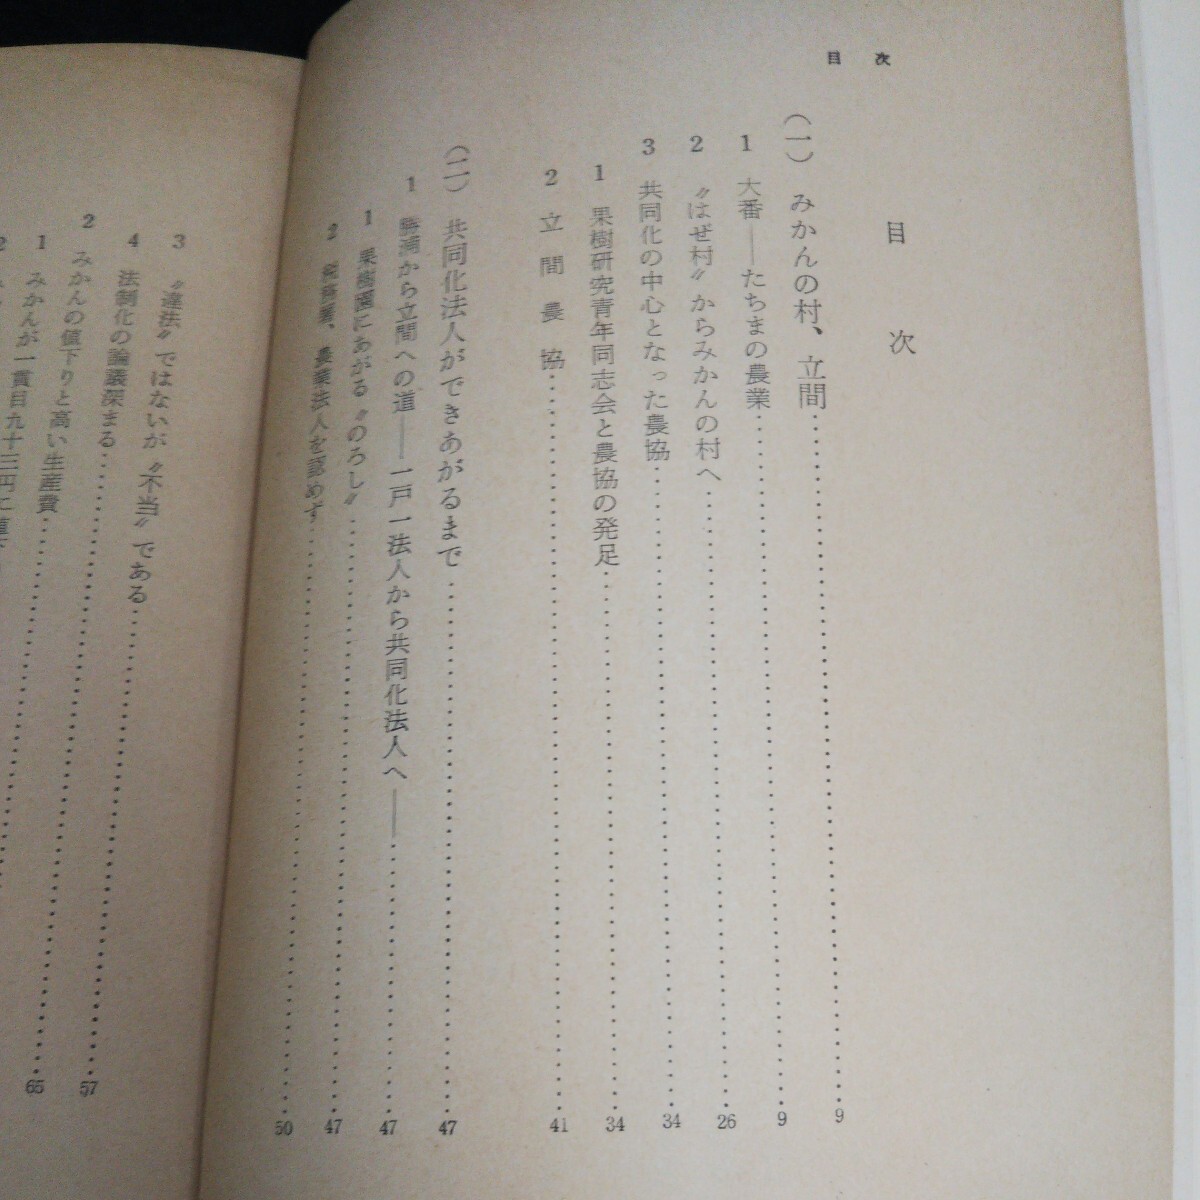 目次
目次
(一) みかんの村、立間……9
1 大番——たちまの農業……9
2 〝はぜ村〟からみかんの村へ……26
3 共同化の中心となった農協……34
1 果樹研究青年同志会と農協の発足……34
2 立間農協……41
(二) 共同化法人ができあがるまで……47
1 勝浦から立間への道——一戸一法人から共同化法人へ——……47
1 果樹園にあがる〝のろし〟……47
2 、農業法人を認めず……50
3 〝違法〟ではないが〝不当〟である……
4 法制化の論議深まる……57
2 みかんの値下りと高い生産費……65
1 みかんが一貫目九十三円に値下
2